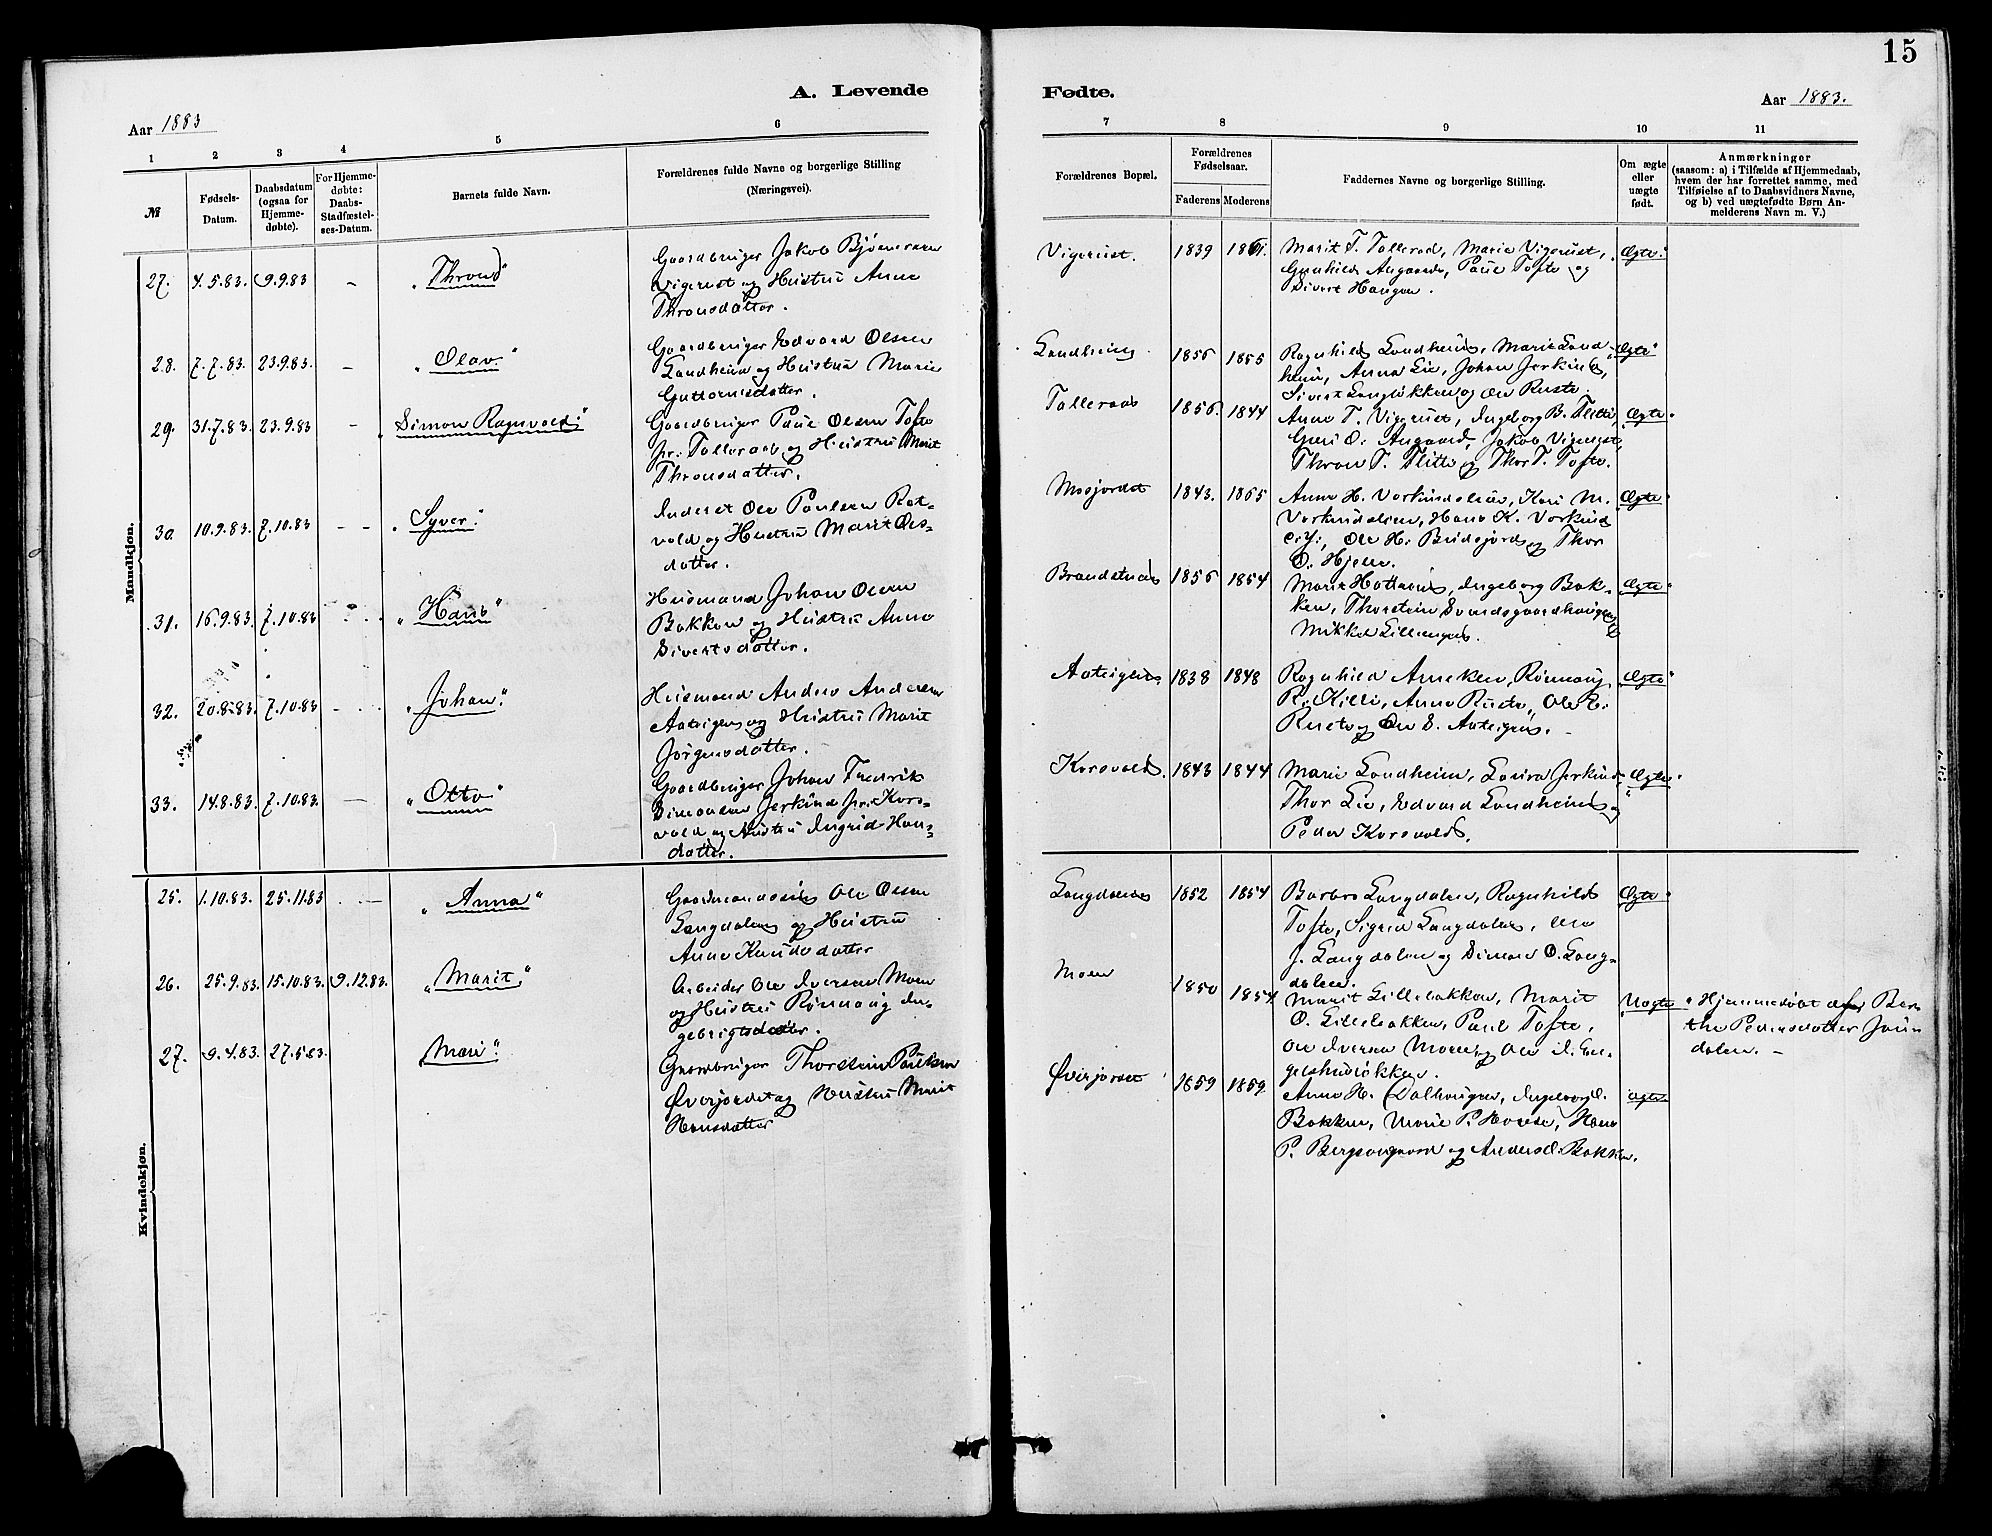 15
A. Levende
Fødte.
Aar 1883
Aar 1883.
1 2 3 4 5 6
7 8 9 10 11
№
Fødsels-
Datum.
Daabsdatum
(ogsaa for
Hjemme-
døbte).
For Hjemme-
døbte:
Daabs-
Stadfæstel-
ses-Datum.
Barnets fulde Navn.
Forældrenes fulde Navne og borgerlige Stilling
(Næringsvei).
Forældrenes Bopæl.
Forældrenes
Fødselsaar.
Faderens Moderens
Faddernes Navne og borgerlige Stilling.
Om ægte
eller
uægte
født.
Anmærkninger
(saasom: a) i Tilfælde af Hjemmedaab,
hvem der har forrettet samme, med
Tilføielse af to Daabsvidners Navne,
og b) ved uægtefødte Børn An-
melderens Navn m. V.)
Mandkjøn.
27. 4.5.83. 9.9.83 - „Thrond"
Gaardbruger Jakob
Vigerust og Hustru Anne
Thronsdatter.
Vigerust. 1839
Marit T. Tollerad, Marie Vigerust,
Gunhild Angaard, Paul Tofte og
Sivert Haugen.
„Ægte"
28. 7.7.83. 23.9.83. - „Olav"
Gaardbruger Edvard Olsen
Landheim og Hustru Marie
Guttormsdatter.
Landheim 1855 1855
Ragnhild Landheim, Marie Land-
heim, Anna Lie, Johan Jerkind,
Sivert Langløkken og Ole Ruste.
„Ægte"
29. 31.7.83. 23.9.83 - „Simon Ragnvald"
Gaardbruger Paul Olsen Tofte
pr. Tollerad og Hustru Marit
Thronsdatter.
Tollerad 1856. 1844
Anne T. Vigerust, Ingeborg B. Flitti,
Guri O. Angaard, Jakob Vigerust,
Thron T. Flitte og Thor T. Tofte.
„Ægte"
30. 10.9.83. 7.10.83 - - „Syver."
Inderst Ole Paulsen Rot-
vold og Hustru Marit Ols-
datter.
Mosjordet 1843. 1855
Anne H. Vorkindslien, Kari M.
Vorkindslien, Hans K. Vorkind
Ole H. Budsjord og Thor
O. Hjelle.
„Ægte"
31. 16.9.83. 7.10.83 „Hans"
Husmand Johan Olsen
Bakken og Hustru Anne
Sivertsdatter.
1856 1854
Ingeborg Bak-
ken, Thorstein
Mikkel Lillengen.
„Ægte"
32. 20.8.83. 7.10.83 „Johan."
Husmand Anders Andersen
Aateigen og Hustru Marit
Jørgensdatter.
Aateigen 1838 1848
Ragnhild Anneken, Rønnaug
R. Killi, Anne Ruste, Ole E.
Ruste og Ole S. Aateigen.
„Ægte"
33. 14.8.83. 7.10.83. - „Otto"
Gaardbruger Johan Fredrik
Simonsen Jerkind pr. Kors-
vold og Hustru Ingrid Han-
datter.
Korsvold. 1843 1844
Marie Landheim, Laura Jerkind,
Thor Lie, Edvard Landheim og
Peder Korsvold.
„Ægte"
Kvindekjøn.
25. 1.10.83. 25.11.83 - „Anna"
Gaardmandssøn Ole Olsen
Langdalen og Hustru
Anne Knudsdatter
Langdalen 1852 1854
Barbro Langdalen, Ragnhild
Tofte, Sigrid Langdalen, Ole
J. Langdalen og Simen O. Lang-
dalen.
„Ægte"
26. 25.9.83. 15.10.83. 9.12.83. „Marit"
Arbeider Ole Iversen Moen
og Hustru Rønnaug In-
gebrigtsdatter.
Moen 1850 1854
Marit Lillebakken, Marit
O. Lillebakken, Paul Tofte,
Ole Iversen Moen og Ole
„Uægte"
Hjemmedøbt af Ber-
the Pedersdatter Jøn-
dalen. -
27. 9.4.83. 27.5.83. „Mari"
Gaardbruger Thorstein Paulsen
Øverjordet og Hustru Marit
Hansdatter
Øverjordet 1859 1859
Anne H. Dalhaugen,
Bakken, Marie P. Horese, Hans
P. Bergsorgaard og Anders Bakken.
ægte